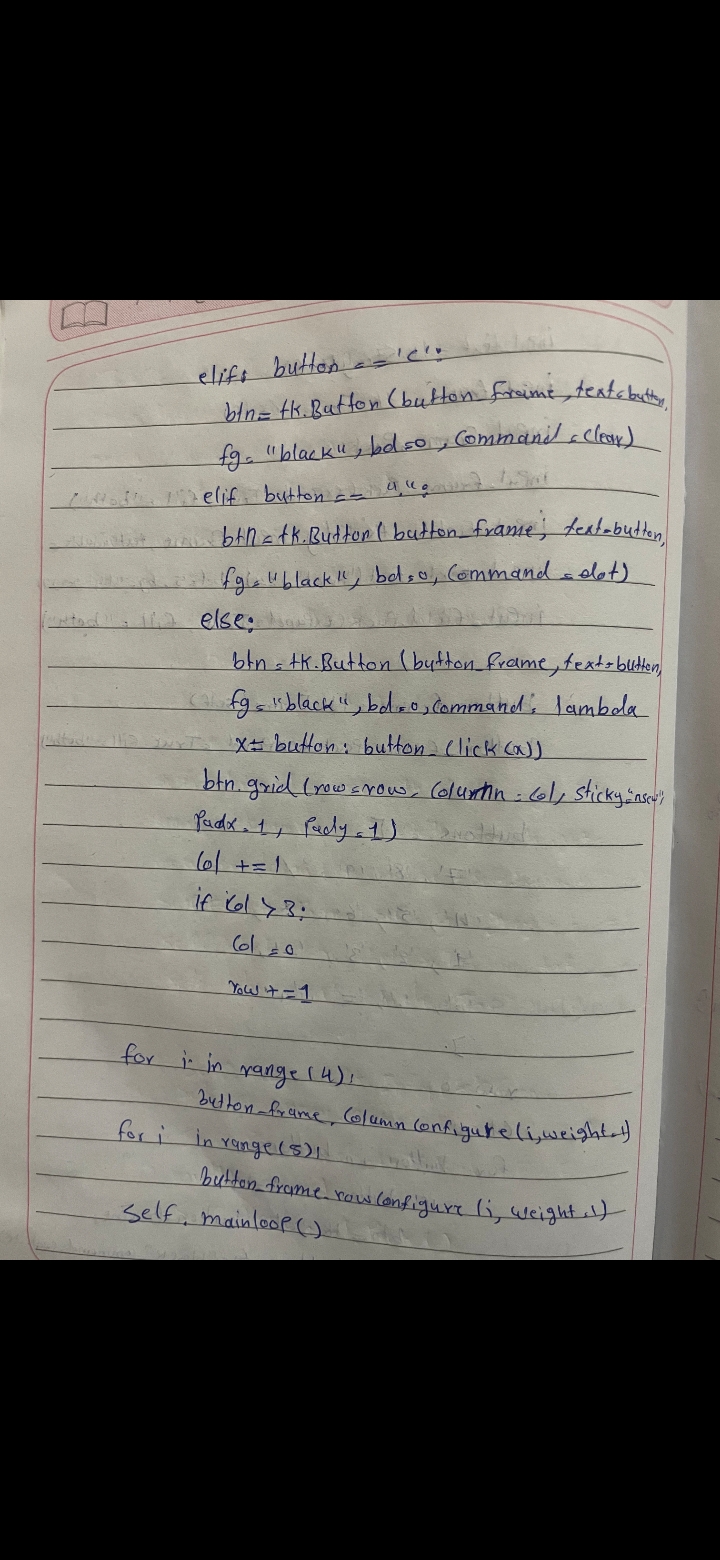 elif: button == 'c':
btn = tk.Button (button_frame, text=button,
fg = "black", bd=0, command = clear)
elif button == ".":
btn = tk.Button ( button_frame, text=button,
fg = "black", bd=0, command = dot)
else:
btn = tk.Button (button_frame, text=button,
fg = "black", bd=0, command = lambda
x = button: button_click (x))
btn.grid (row=row, column = col, sticky="nsew",
padx=1, pady=1)
col += 1
if col > 3:
col = 0
row += 1
for i in range (4):
button_frame. column configure (i, weight=1)
for i in range (5):
button_frame. row configure (i, weight=1)
self. mainloop()